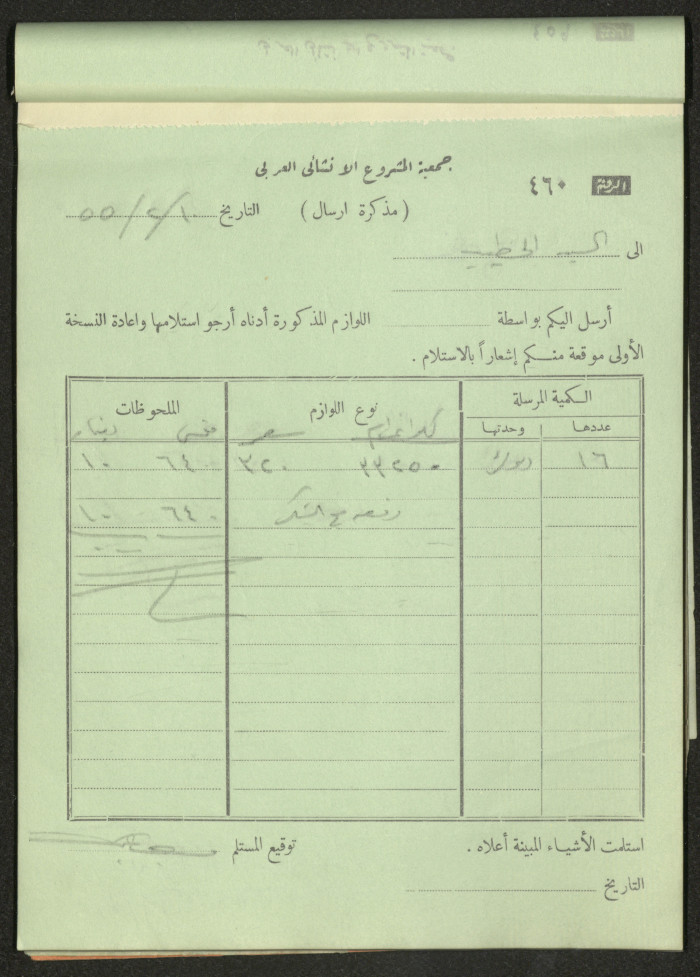 جمعية المشروع الانشائي العربي
الرقم ٤٦٠
(مذكرة ارسال) التاريخ ١٠/٢/٥٥
الى السيد الخطيب
أرسل اليكم بواسطة اللوازم المذكورة أدناه أرجو استلامها واعادة النسخة
الأولى موقعة منكم إشعاراً بالاستلام .
الكمية المرسلة نوع اللوازم الملحوظات
عددها وحدتها كيلو غرام سعر فلس دينار
١٦ ديوك ٣٣٢٥٠ ٣٢٠ ٦٤٠ ١٠
دفعه مع الشكر ٦٤٠ ١٠
استلمت الأشياء المبينة أعلاه . توقيع المستلم
التاريخ